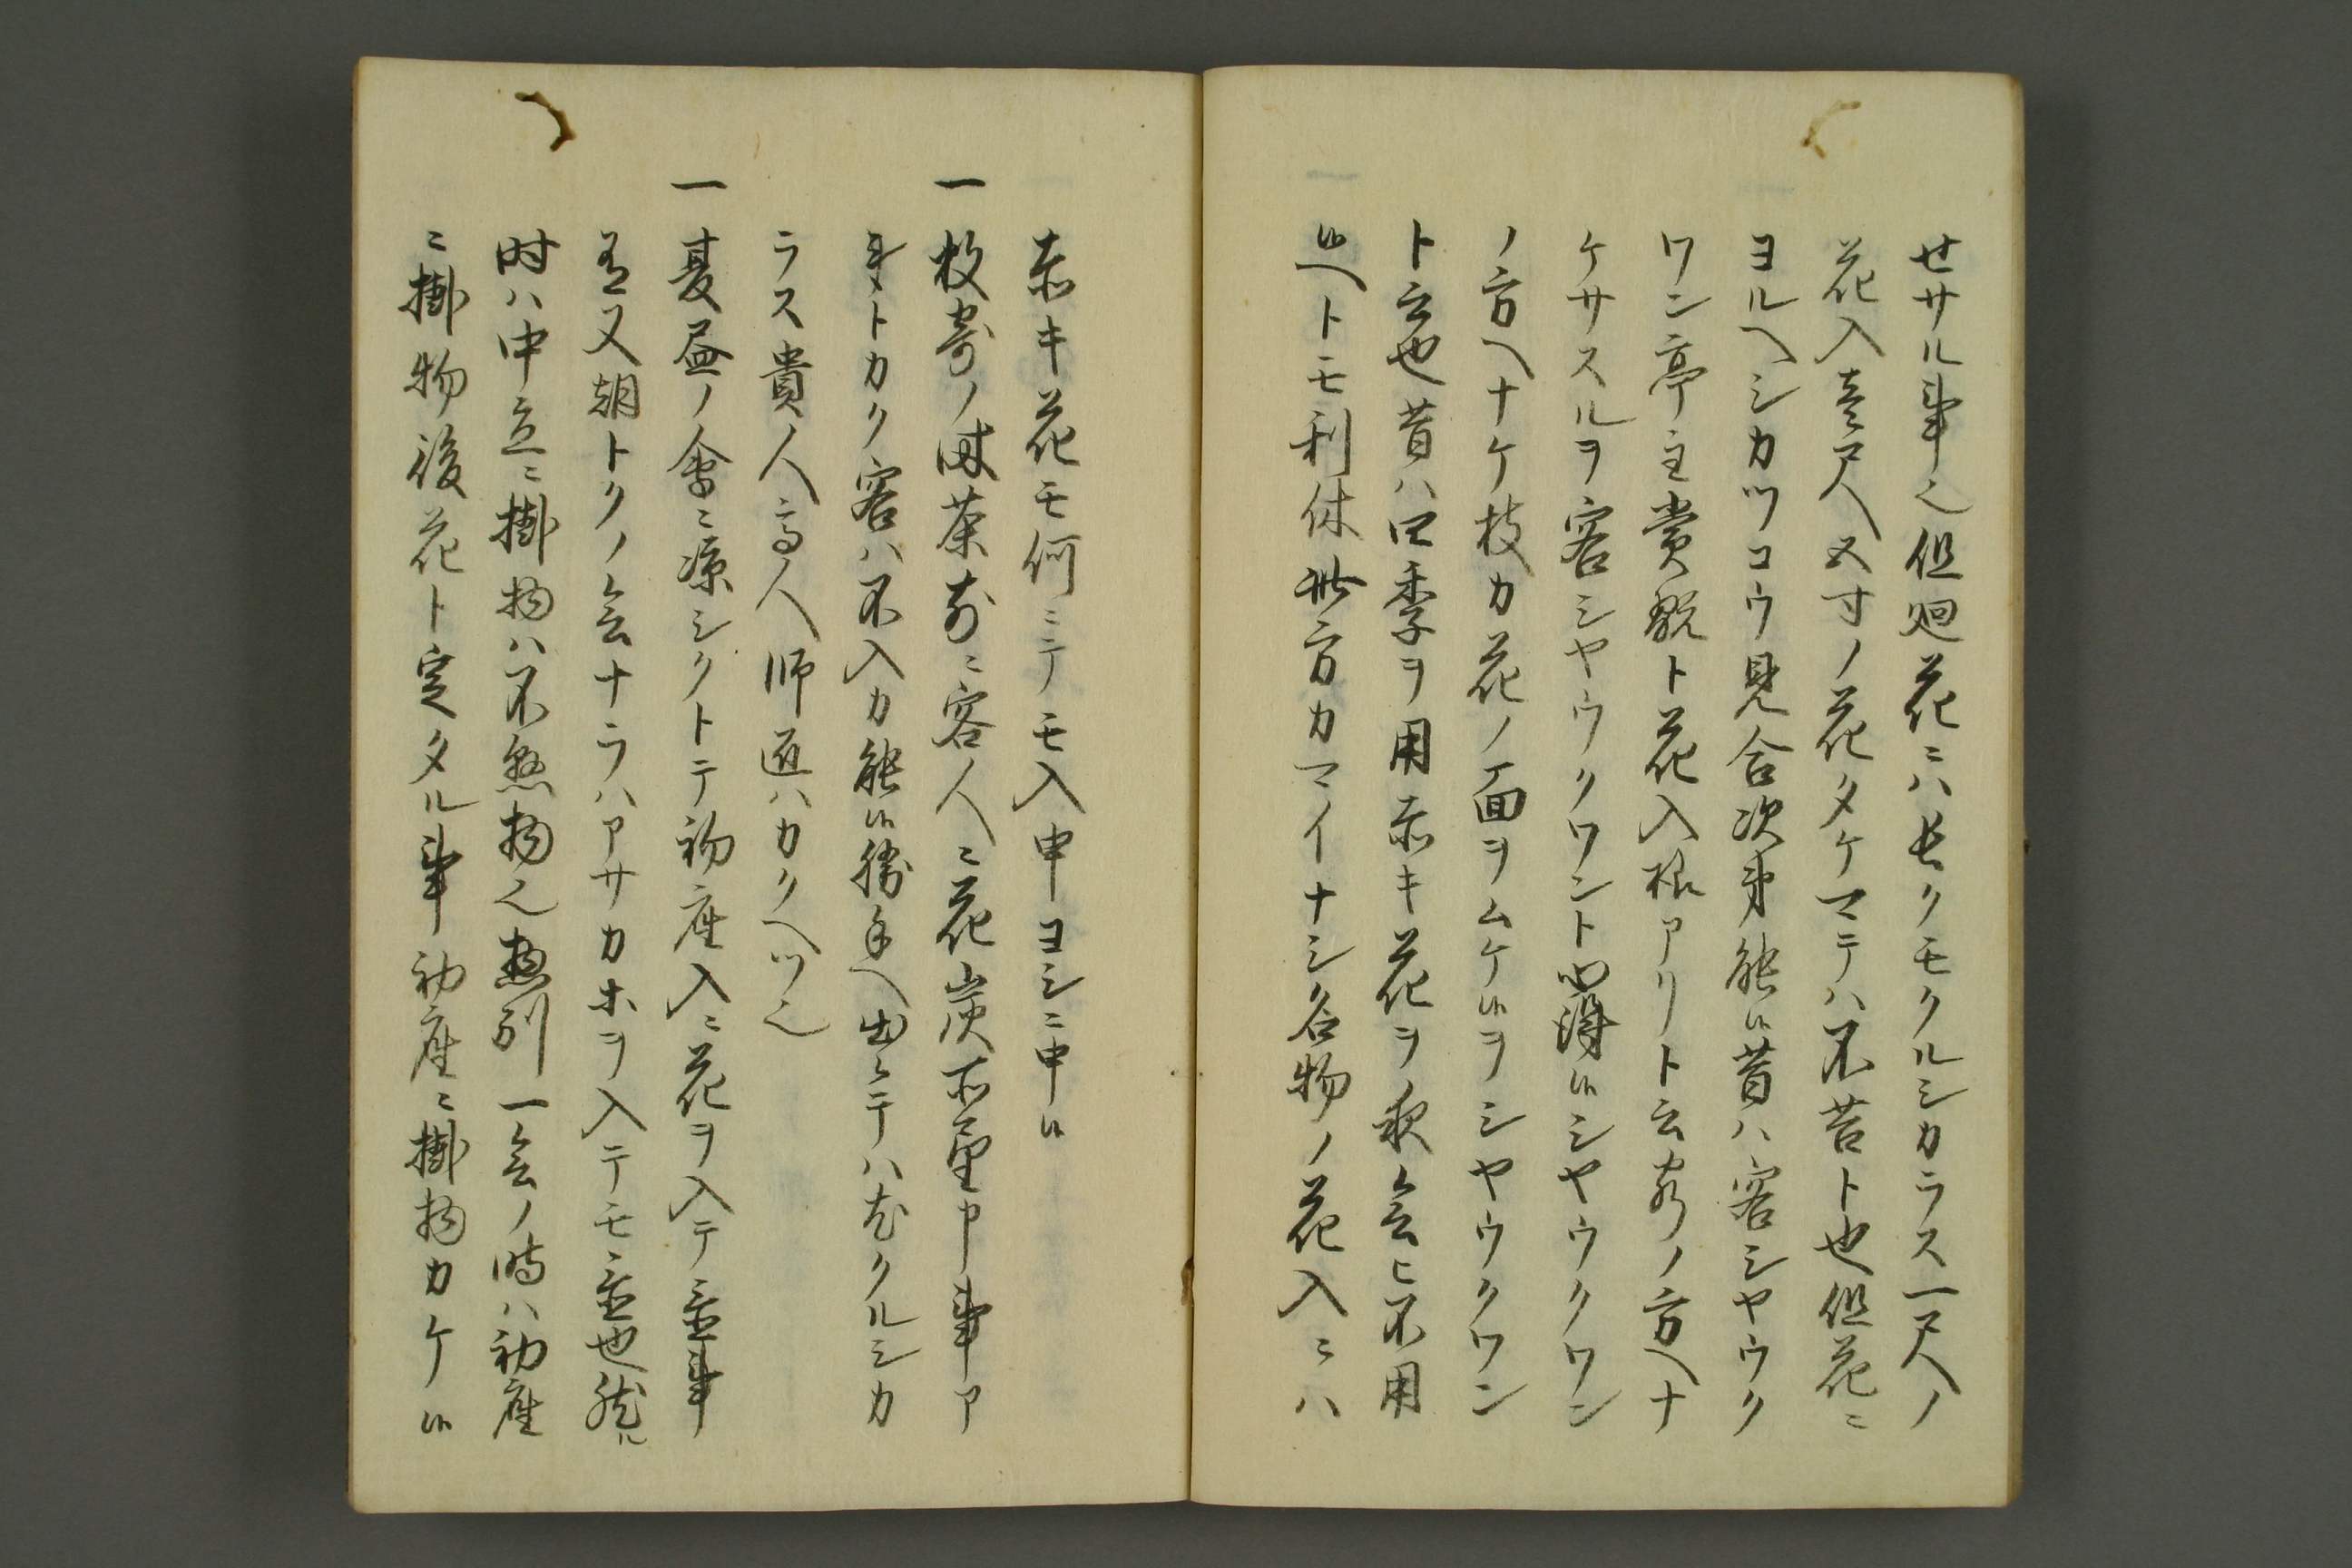 セサル事也但廻花ニハ長クモクルシカラス一尺ノ
花入壱尺五寸ノ花タケマテハ不苦ト也但花ニ
ヨルヘシカツコウ見合次第能候昔ハ客シヤウク
ワン亭主賞翫ト花入様アリト云客ノ方ヘナ
ケサスルヲ客シヤウクワント心得候シヤウクワン
ノ方ヘナケ枝カ花ノ面ヲムケ候ヲシヤウクワン
ト云也昔ハ四季ヲ用赤キ花ヲ夜会ニ不用
候ヘトモ利休此方カマイナシ名物ノ花入ニハ
赤キ花モ何ニテモ入申ヨシニ申候
一 数寄ノ時茶前ニ客人ニ花炭所望申事ア
トカク客ハ不入カ能候勝手ヘ出シテハクルシカ
ラス貴人高人師匠ハカクヘツ也
一 夏昼ノ會ニ涼シクトテ初座入ニ花ヲ入テ置事
又朝トクノ会ナラハアサカホヲ入テモ置也然ル
時ハ中立ニ掛物ハ不懸物也惣別一会ノ時ハ初座
ニ掛物後花ト定タル事初座ニ掛物カケ候